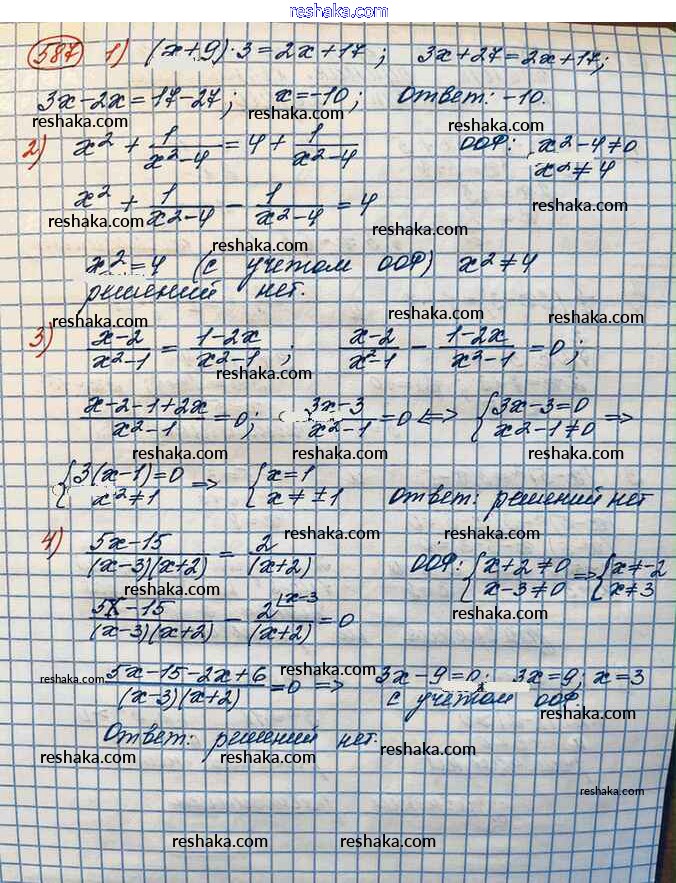 reshaka.com
587 1) (x+9)·3=2x+17; 3x+27=2x+17;
3x-2x=17-27; x=-10; Ответ: -10.
reshaka.com reshaka.com
2) x²+1/(x²-4)=4+1/(x²-4) ООФ: x²-4≠0
x²≠4
reshaka.com reshaka.com
x²+1/(x²-4)-1/(x²-4)=4
reshaka.com reshaka.com reshaka.com
x²=4 (с учетом ООФ) x²≠4
решений нет.
reshaka.com reshaka.com reshaka.com
3) (x-2)/(x²-1)=(1-2x)/(x²-1); (x-2)/(x²-1)-(1-2x)/(x²-1)=0;
reshaka.com
(x-2-1+2x)/(x²-1)=0; (3x-3)/(x²-1)=0 <=> {3x-3=0 x²-1≠0 =>
reshaka.com reshaka.com reshaka.com
{3(x-1)=0 x²≠1 => {x=1 x≠±1 Ответ: решений нет
reshaka.com reshaka.com
4) (5x-15)/((x-3)(x+2))=2/(x+2) ООФ: {x+2≠0 x-3≠0 => {x≠-2 x≠3
reshaka.com reshaka.com
(5x-15)/((x-3)(x+2))-2/(x+2) |x-3 =0
reshaka.com
reshaka.com reshaka.com reshaka.com
(5x-15-2x+6)/((x-3)(x+2))=0 => 3x-9=0; 3x=9; x=3
с учетом ООФ.
reshaka.com
Ответ: решений нет.
reshaka.com reshaka.com reshaka.com
reshaka.com
reshaka.com reshaka.com